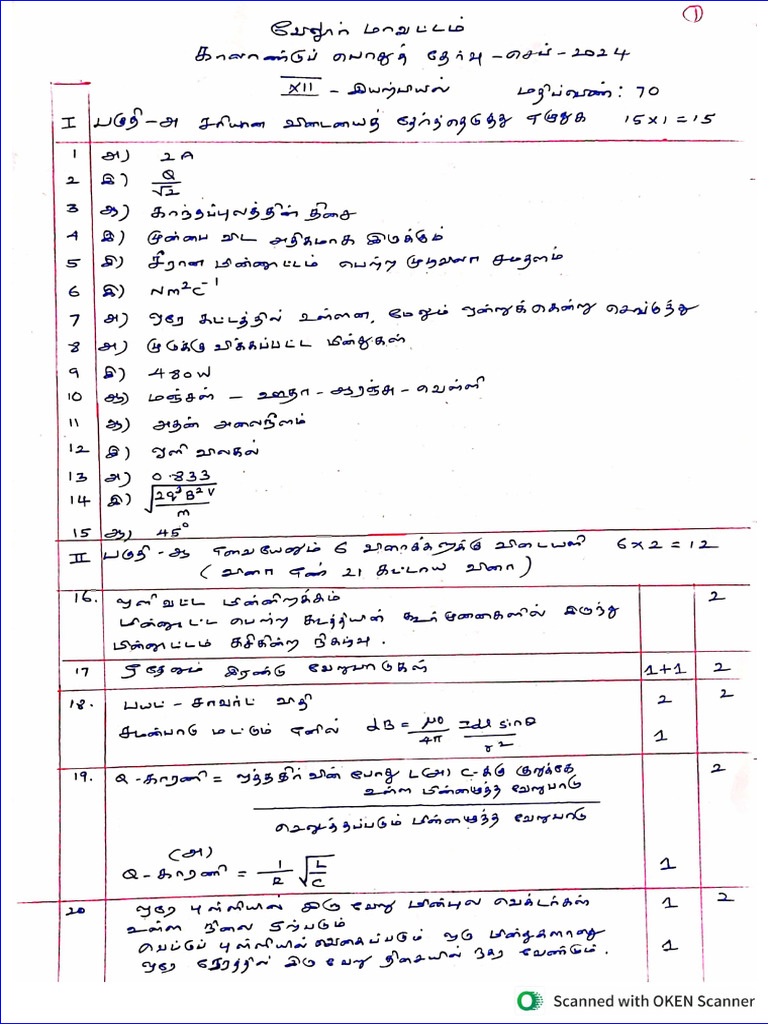 ①
வேலூர் மாவட்டம்
காலாண்டுப் பொதுத் தேர்வு - செப் - 2024
XII - இயற்பியல் மதிப்பெண்: 70
I பகுதி - அ சரியான விடையைத் தேர்ந்தெடுத்து எழுதுக 15x1=15
1 அ) 2A
2 இ) Q/√2
3 ஆ) காந்தப்புலத்தின் திசை
4 இ) முன்பை விட அதிகமாக இருக்கும்
5 இ) சீரான மின்னூட்டம் பெற்ற முடிவிலா சமதளம்
6 இ) Nm²C⁻¹
7 அ) ஒரே கட்டத்தில் உள்ளன, மேலும் ஒன்றுக்கொன்று செங்குத்து
8 அ) முடுக்குவிக்கப்பட்ட மின்துகள்
9 இ) 480W
10 ஆ) மஞ்சள் - ஊதா - ஆரஞ்சு - வெள்ளி
11 ஆ) அதன் அலைநீளம்
12 இ) ஒளி விலகல்
13 அ) 0.833
14 இ) √(2q³B²V/m)
15 ஆ) 45°
II பகுதி - ஆ எவையேனும் 6 வினாக்களுக்கு விடையளி 6x2=12
(வினா எண் 21 கட்டாய வினா)
16. ஒளிவட்ட மின்னிறக்கம் 2
மின்னூட்ட பெற்ற கடத்தியின் கூர்முனைகளில் இருந்து
மின்னூட்டம் கசிகின்ற நிகழ்வு.
17 ஏதேனும் இரண்டு வேறுபாடுகள் 1+1 2
18. பயட் - சாவர்ட் விதி 2 2
சமன்பாடு மட்டும் எனில் dB = μ0/4π Idl sinθ/r² 1
19. Q - காரணி = ஒத்ததிர்வின் போது L (அ) C-க்கு குறுக்கே 2
உள்ள மின்னழுத்த வேறுபாடு
செலுத்தப்படும் மின்னழுத்த வேறுபாடு
(அ)
Q - காரணி = 1/R √(L/C) 1
20 ஒரே புள்ளியில் இரு வேறு மின்புல வெக்டர்கள் 1 2
உள்ள நிலை ஏற்படும்
வெட்டுப் புள்ளியில் வைக்கப்படும் ஒரு மின்துகளானது 1
ஒரே நேரத்தில் இரு வேறு திசையில் நகர வேண்டும்.
Scanned with OKEN Scanner